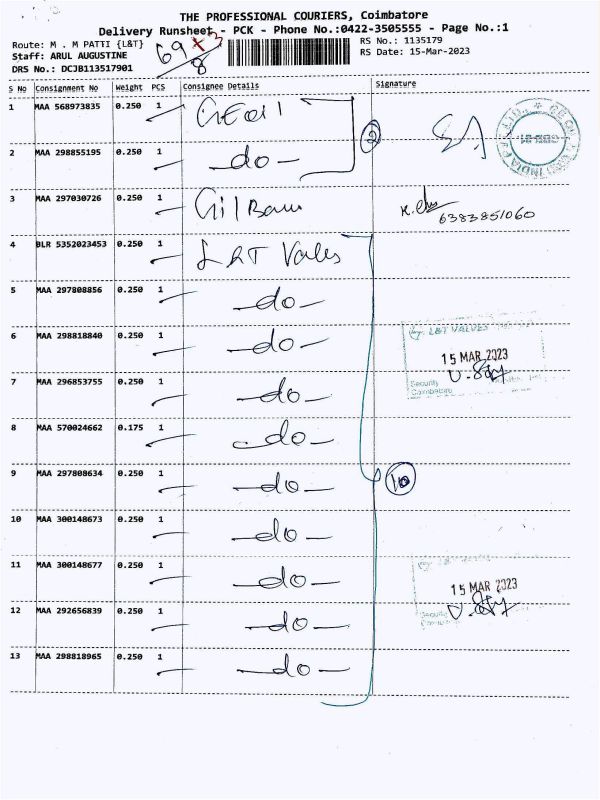 THE PROFESSIONAL COURIERS, Coimbatore
Delivery Runsheet - PCK - Phone No.:0422-3505555 - Page No.:1
Route: M . M PATTI {L&T}
Staff: ARUL AUGUSTINE
DRS No.: DCJB113517901
69 + 3
8
RS No.: 1135179
RS Date: 15-Mar-2023
S No Consignment No Weight PCS Consignee Details Signature
1 MAA 568973835 0.250 1
2 MAA 298855195 0.250 1 -do-
2
3 MAA 297030726 0.250 1
6383851060
4 BLR 5352023453 0.250 1 L&T Valves
5 MAA 297808856 0.250 1 -do-
6 MAA 298818840 0.250 1 -do-
L&T VALVES
15 MAR 2023
Security
Coimbatore
7 MAA 296853755 0.250 1 -do-
8 MAA 570024662 0.175 1 -do-
9 MAA 297808634 0.250 1 -do-
10
10 MAA 300148673 0.250 1 -do-
11 MAA 300148677 0.250 1 -do-
15 MAR 2023
12 MAA 292656839 0.250 1 -do-
13 MAA 298818965 0.250 1 -do-